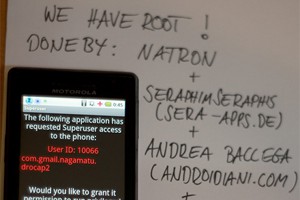 WE HAVE ROOT!
DONE BY: NATRON
+
SERAPHIMSERAPHIS
(SERA-APPS.DE)
+
ANDREA BACCEGA
(ANDROIDIANI.COM)
+
MOTOROLA
0:45
Superuser
The following application has
requested Superuser access
to the phone:
User ID: 10066
com.gmail.nagamatu.
drocap2
Would you like to grant it
permission to run